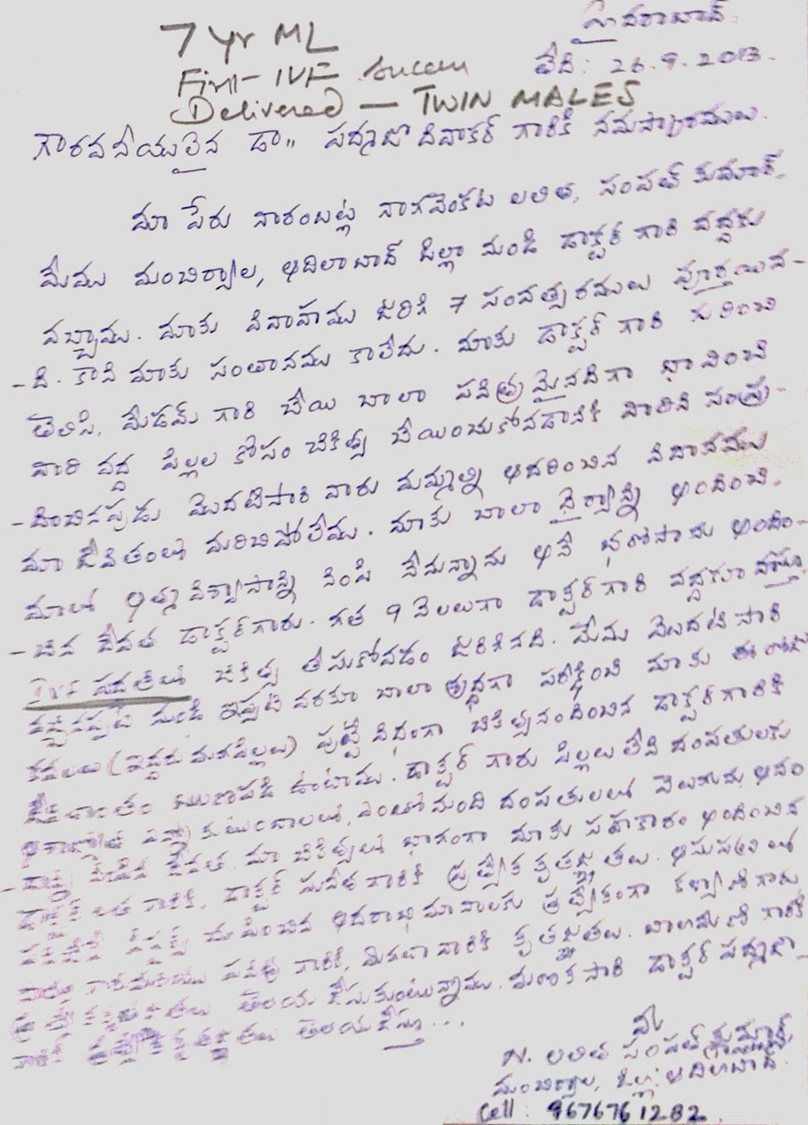 7 Yr ML
First - IVF Success
Delivered - TWIN MALES
హైదరాబాద్.
తేది: 26.9.2013.
గౌరవనీయులైన డా,, పద్మజా దివాకర్ గారికి నమస్కారములు.
మా పేరు నాగవెంకట లలిత, సంపత్ కుమార్.
మేము మంచిర్యాల, ఆదిలాబాద్ జిల్లా నుండి డాక్టర్ గారి వద్దకు
వచ్చాము. మాకు వివాహము జరిగి 7 సంవత్సరములు పూర్తయిన-
-ది. కాని మాకు సంతానము కాలేదు. మాకు డాక్టర్ గారి గురించి
తెలిసి, మేడమ్ గారి చేయి చాలా పవిత్రమైనదిగా భావించి
వారి వద్ద పిల్లల కోసం చికిత్స చేయించుకోవడానికి వారిని సంప్ర-
-దించినప్పుడు మొదటిసారి వారు మమ్మల్ని ఆదరించిన విధానము
మా జీవితంలో మరిచిపోలేము. మాకు చాలా ధైర్యాన్ని అందించి.
మాలో ఆత్మ విశ్వాసాన్ని నింపి నేనున్నాను అనే భరోసాను అందిం-
-చిన దేవత డాక్టర్ గారు. గత 9 నెలలుగా డాక్టర్ గారి వద్దకు వస్తూ
IVF పద్దతిలో చికిత్స తీసుకోవడం జరిగినది. మేము మొదటి సారి
వచ్చినప్పటి నుండి ఇప్పటి వరకూ చాలా శ్రద్ధగా పరీక్షించి మాకు ఈ రోజు
కవలలు (ఇద్దరు మగపిల్లలు) పుట్టే విధంగా చికిత్సనందించిన డాక్టర్ గారికి
జీవితాంతం ఋణపడి ఉంటాము. డాక్టర్ గారు పిల్లలు లేని దంపతులకు
కుటుంబాలలో, ఎంతో మంది దంపతులలో వెలుగును
దేవత. మా చికిత్సలో భాగంగా మాకు సహాకారం అందించిన
డాక్టర్ లత గారికి, డాక్టర్ సునీత గారికి ప్రత్యేక కృతజ్ఞతలు.
చూపించిన ఆదరాభిమానాలకు ప్రత్యేకంగా కళ్యాణి గారు
గారికి, మిగతా వారికి కృతజ్ఞతలు. గారికి
తెలియ చేసుకుంటున్నాము. మరొకసారి డాక్టర్ పద్మజా
గారికి తెలియచేస్తూ...
N. లలిత సంపత్ కుమార్,
మంచిర్యాల, జిల్లా: ఆదిలాబాద్.
Cell : 9676761282.